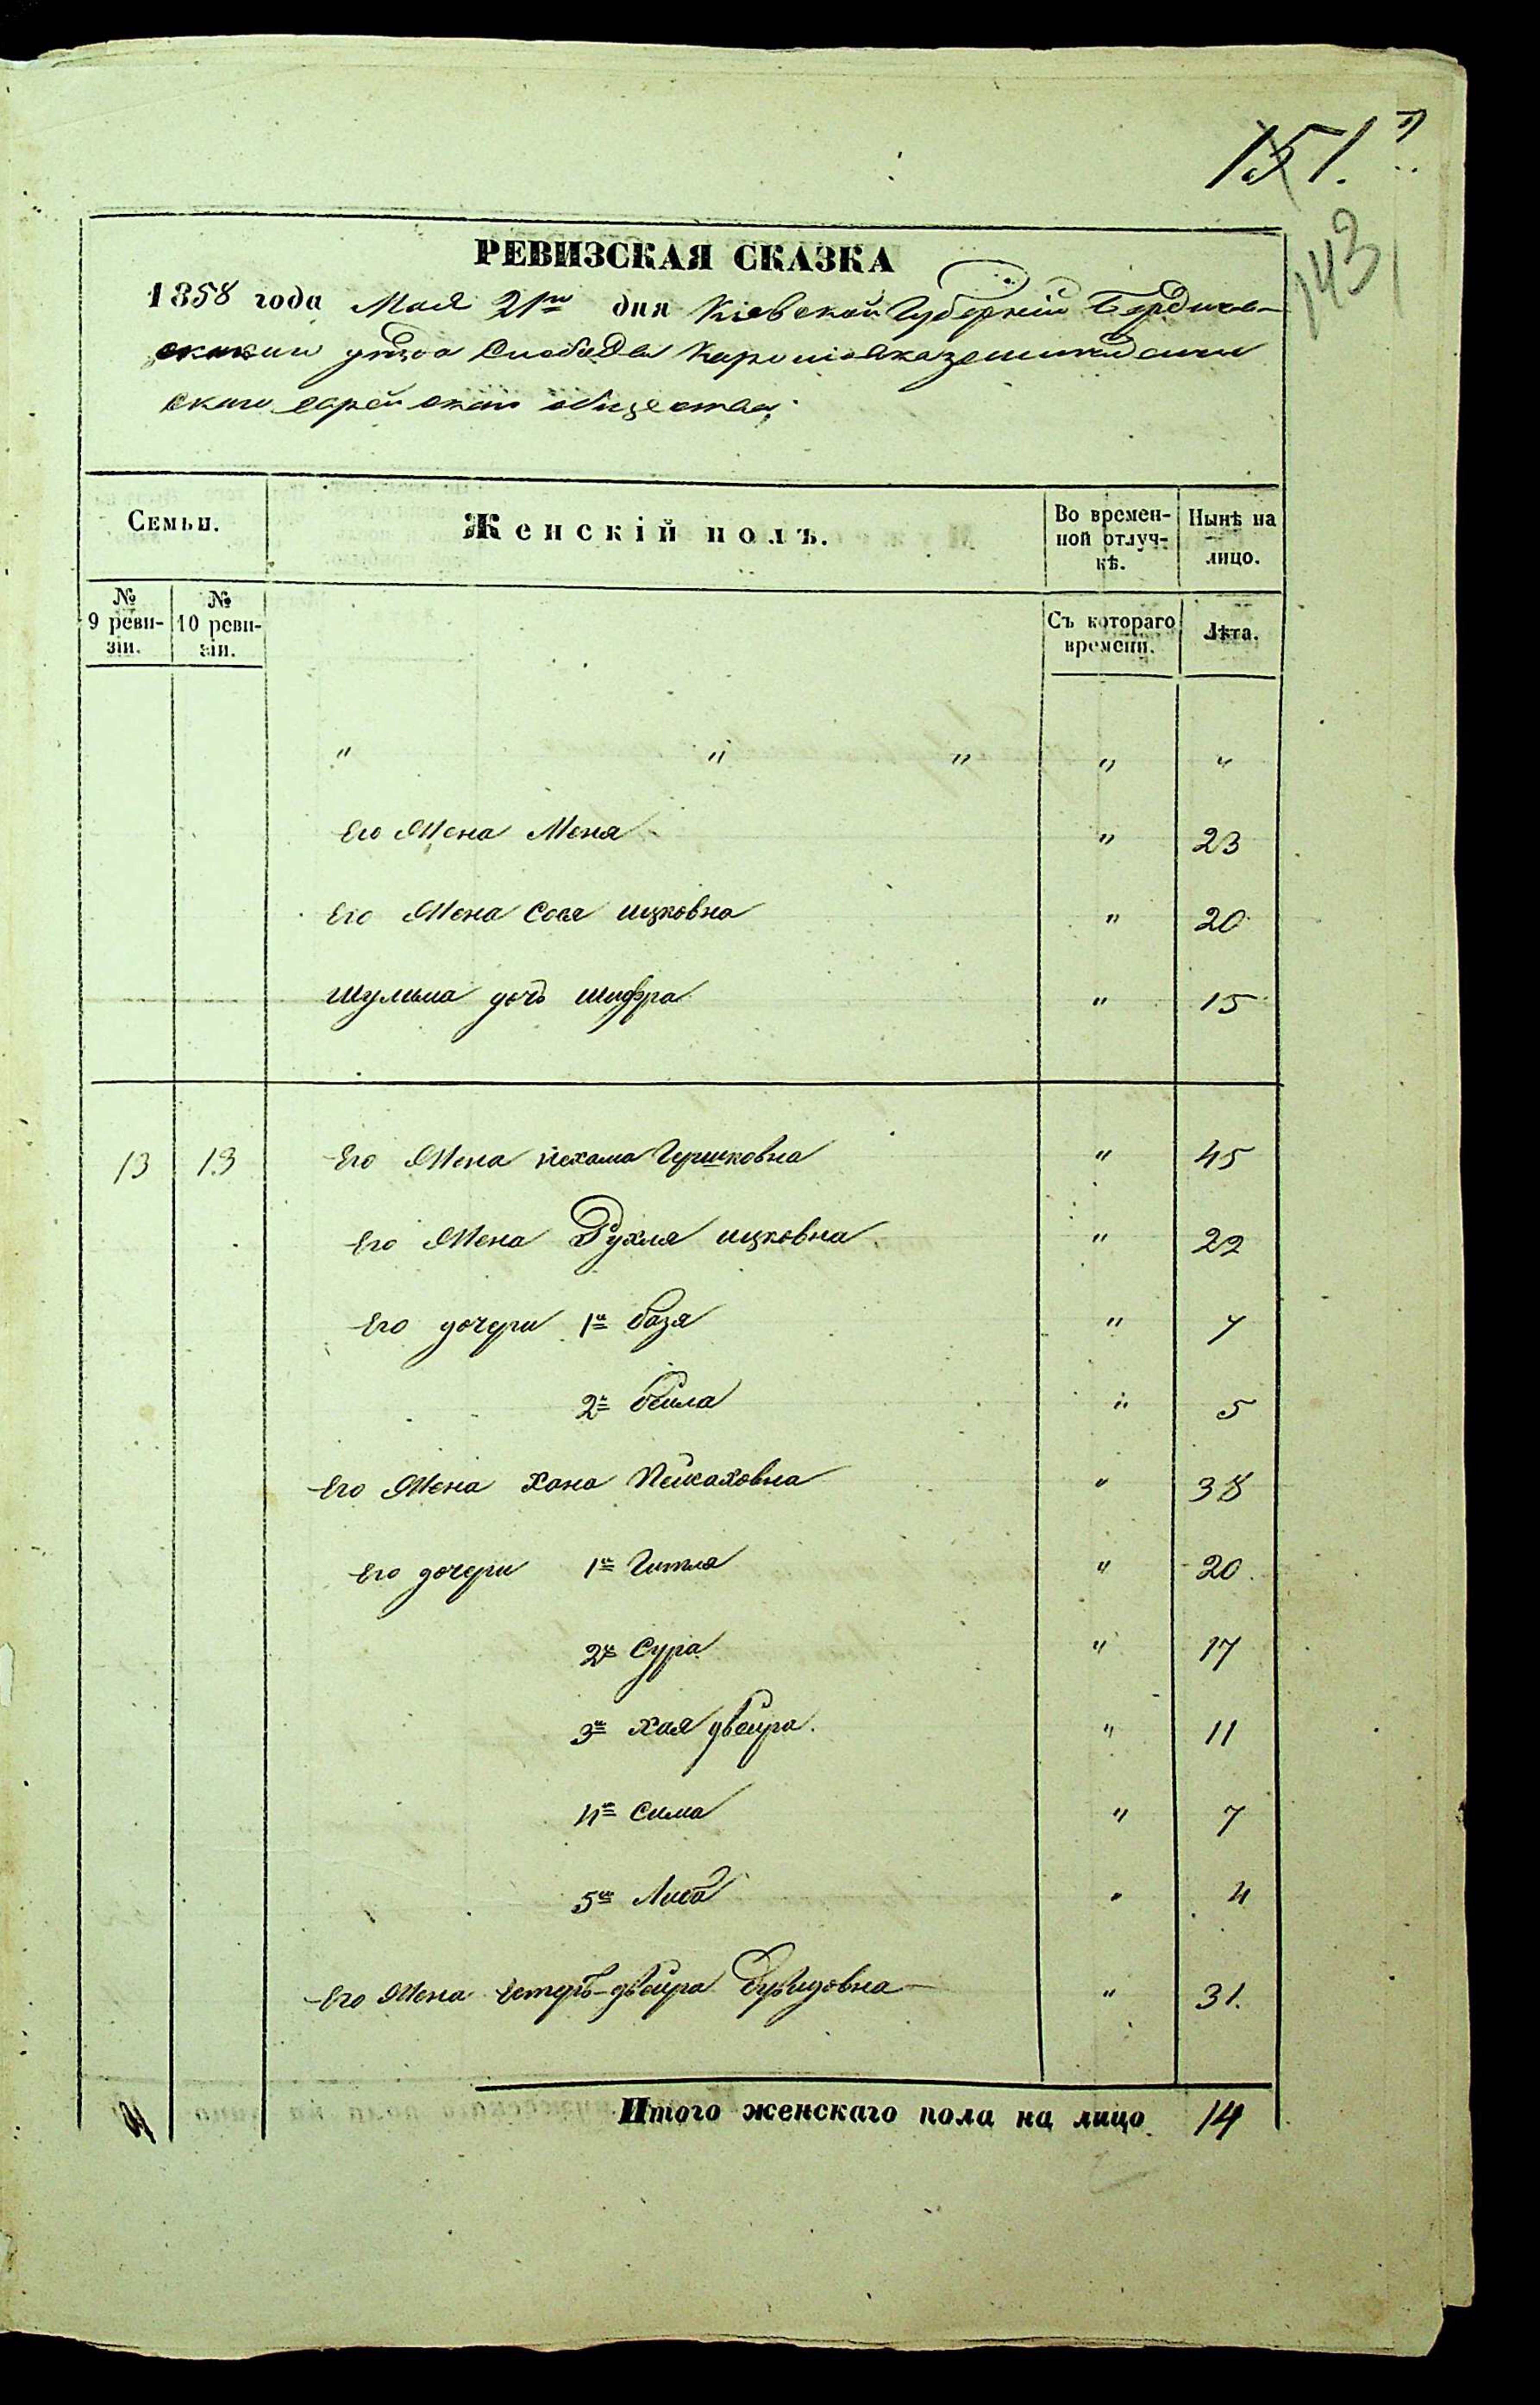 151.
143
РЕВИЗСКАЯ СКАЗКА
1858 года Мая 21го дня Кіевской Губерніи Бердичев-
скаго уѣзда Слободы
скаго еврейскаго общества
Семьи.
Женскій полъ.
Во времен-
ной отлуч-
кѣ.
Нынѣ на
лицо.
№
9 реви-
зіи.
№
10 реви-
зіи.
Съ котораго
времени.
Лѣта.
" " " " "
Его Жена Меня " 23
Его Жена Сося ицковна " 20
Шульма дочь шифра " 15
13 13 Его Жена нехама Гершковна " 45
Его Жена Рухля ицковна " 22
Его дочери 1я базя " 7
2я бейла " 5
Его Жена хана Пейсаховна " 38
Его дочери 1я Гитля " 20
2я Сура " 17
3я хая двейра. " 11
4я Сима " 7
5я Либа " 4
Его Жена естеръ-двейра Дувидовна " 31.
Итого женскаго пола на лицо 14